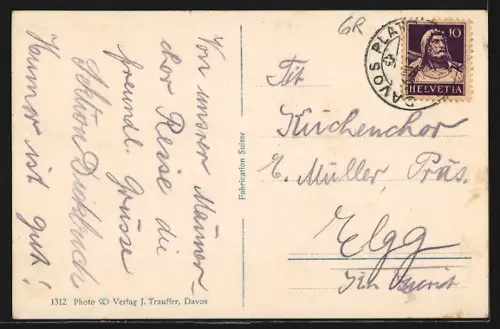 Von unsrer Männer-
chor Reise die
freundl. Grüsse
Sektion Dickbuch
Humor ist gut!
GR
DAVOS PLATZ
10
HELVETIA
Tit
Kirchenchor
E. Müller, Präs.
Elgg
Kt. Zürich
Fabrication Suisse
1312 Photo Verlag J. Trauffer, Davos